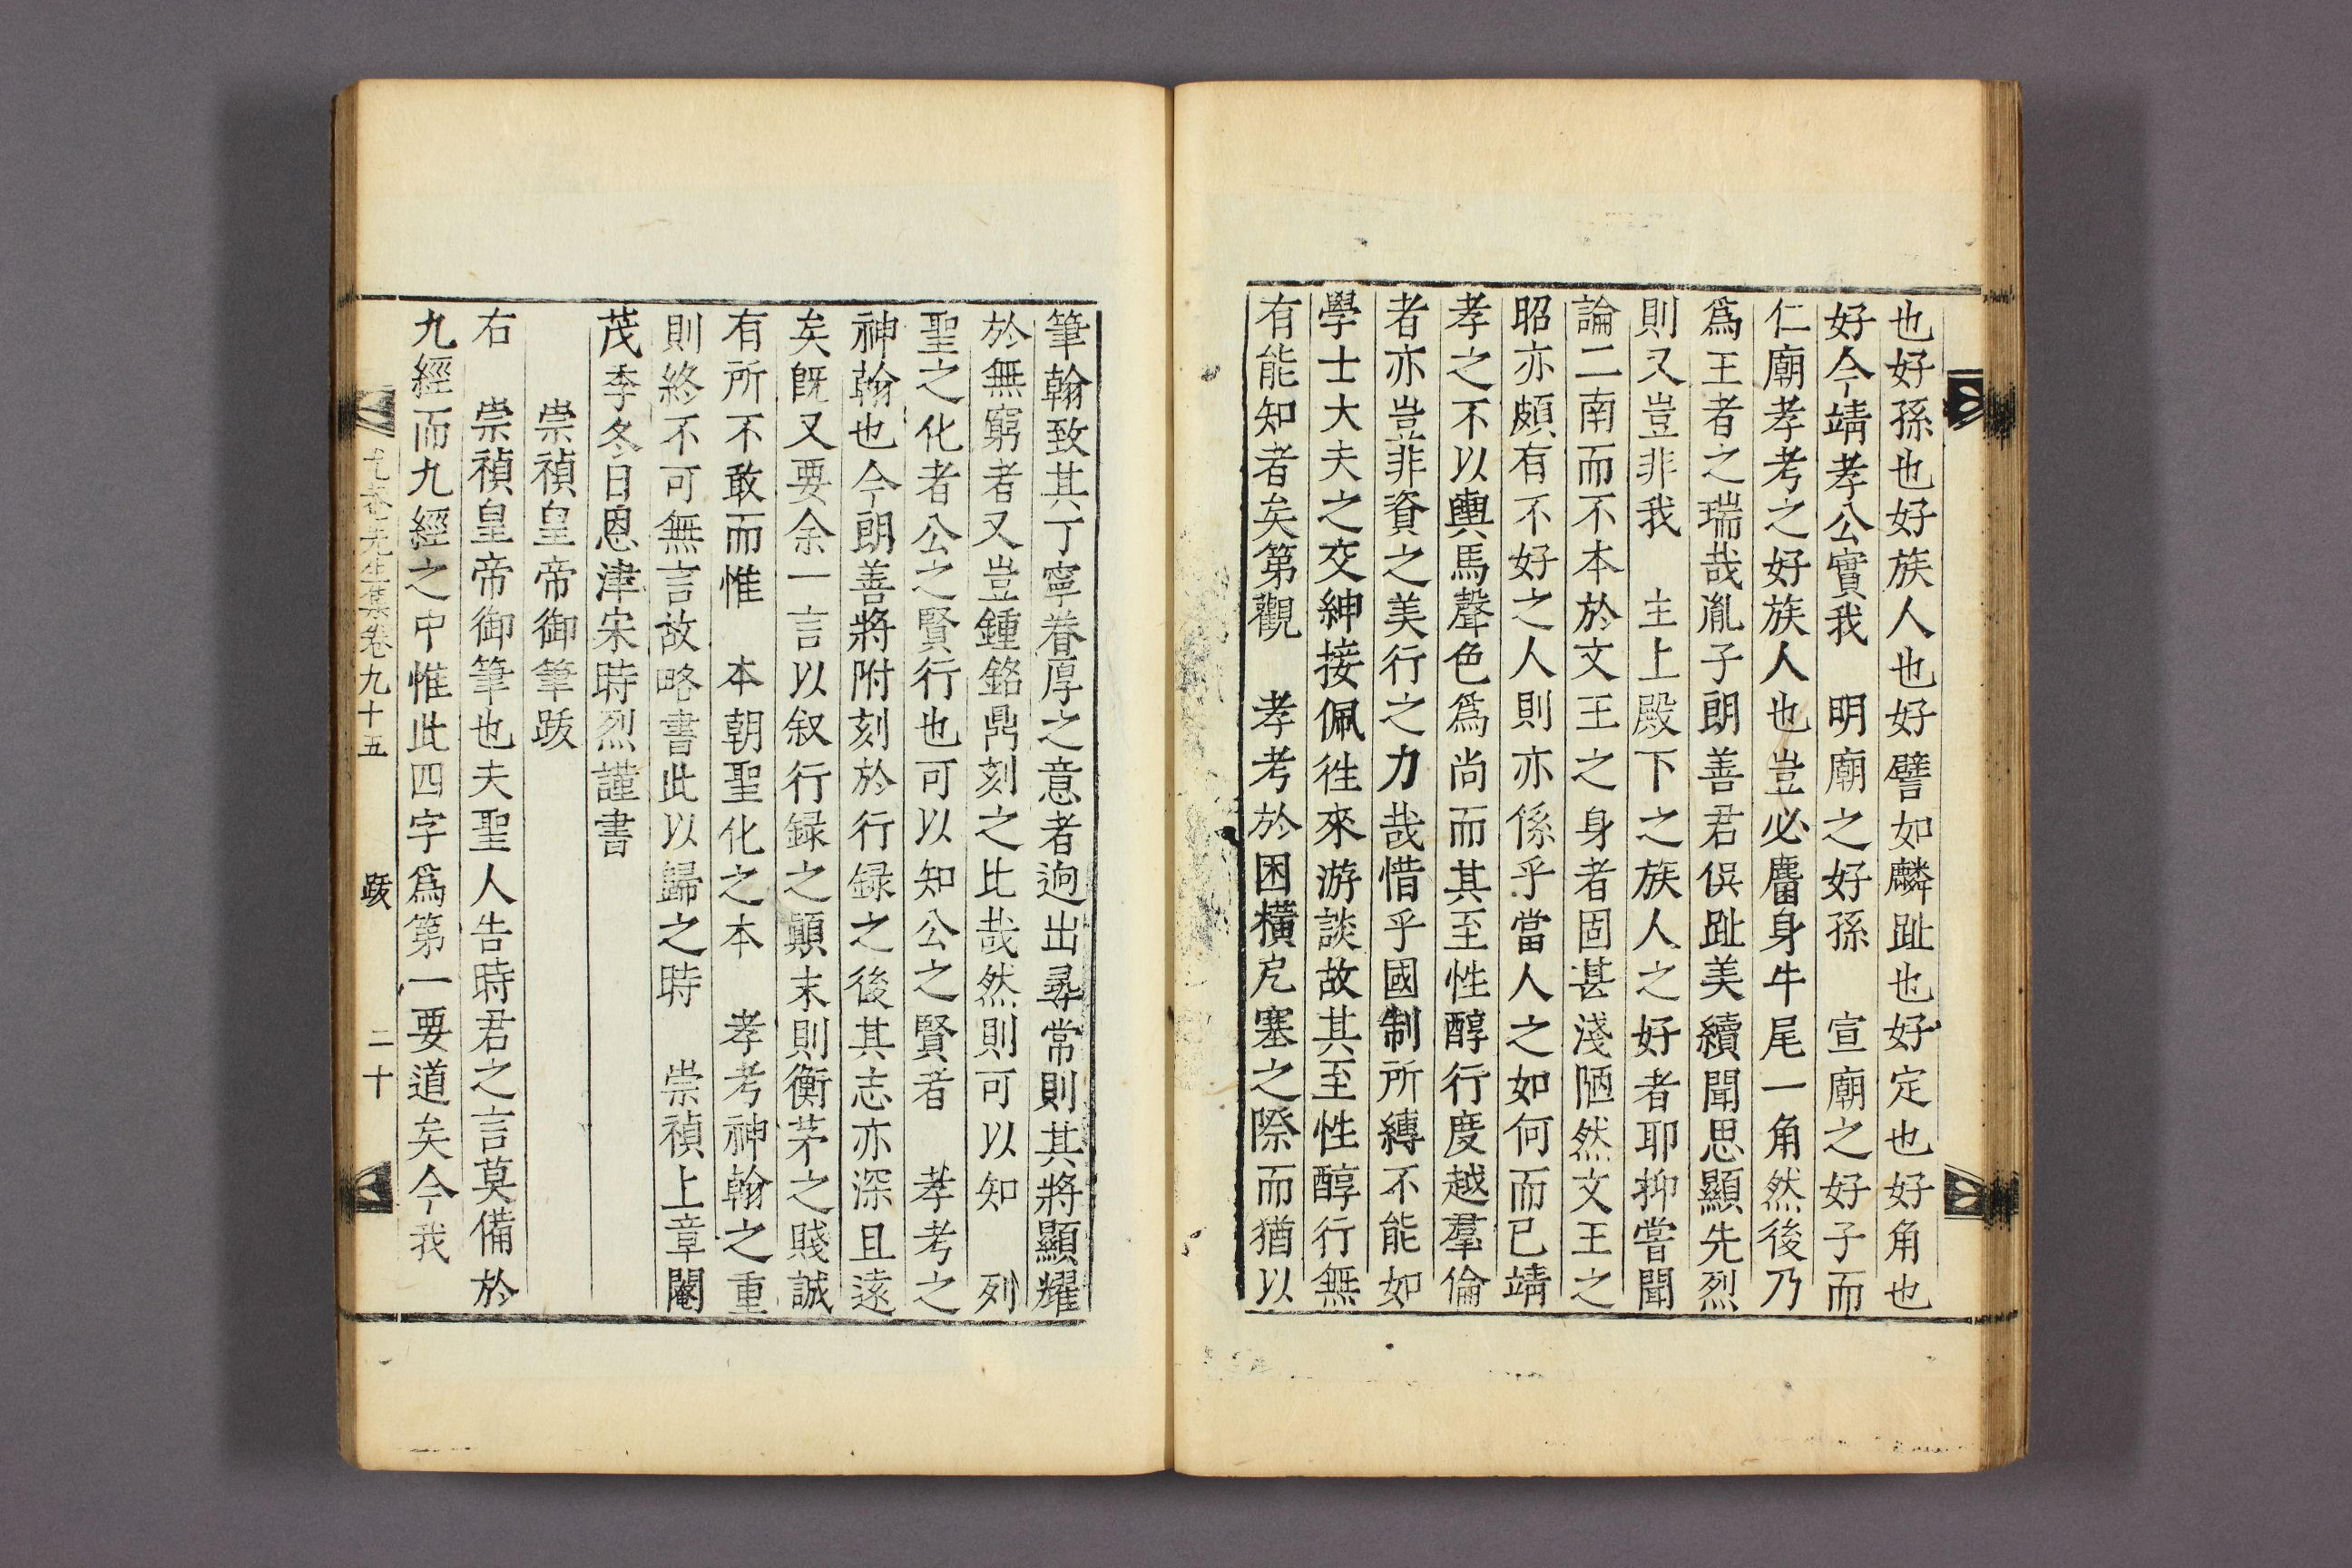 也好孫也好族人也好譬如麟趾也好定也好角也
好今靖孝公實我　明廟之好孫　宣廟之好子而
仁廟孝考之好族人也豈必麕身牛尾一角然後乃
爲王者之瑞哉胤子朗善君俁趾美續聞思顯先烈
則又豈非我　主上殿下之族人之好者耶抑嘗聞
論二南而不本於文王之身者固甚淺陋然文王之
昭亦頗有不好之人則亦係乎當人之如何而已靖
孝之不以輿馬聲色爲尚而其至性醇行度越羣倫
者亦豈非資之美行之力哉惜乎國制所縛不能如
學士大夫之交紳接佩徃來游談故其至性醇行無
有能知者矣第觀　孝考於困橫厄塞之際而猶以
筆翰致其丁寧眷厚之意者逈出尋常則其將顯耀
於無窮者又豈鍾銘鼎刻之比哉然則可以知　列
聖之化者公之賢行也可以知公之賢者　孝考之
神翰也今朗善將附刻於行録之後其志亦深且遠
矣旣又要余一言以叙行録之顚末則衡茅之賤誠
有所不敢而惟　本朝聖化之本　孝考神翰之重
則終不可無言故略書此以歸之時　崇禎上章閹
茂季冬日恩津宋時烈謹書
崇禎皇帝御筆跋
右　崇禎皇帝御筆也夫聖人告時君之言莫備於
九經而九經之中惟此四字爲第一要道矣今我
先生集卷九十五　跋　二十